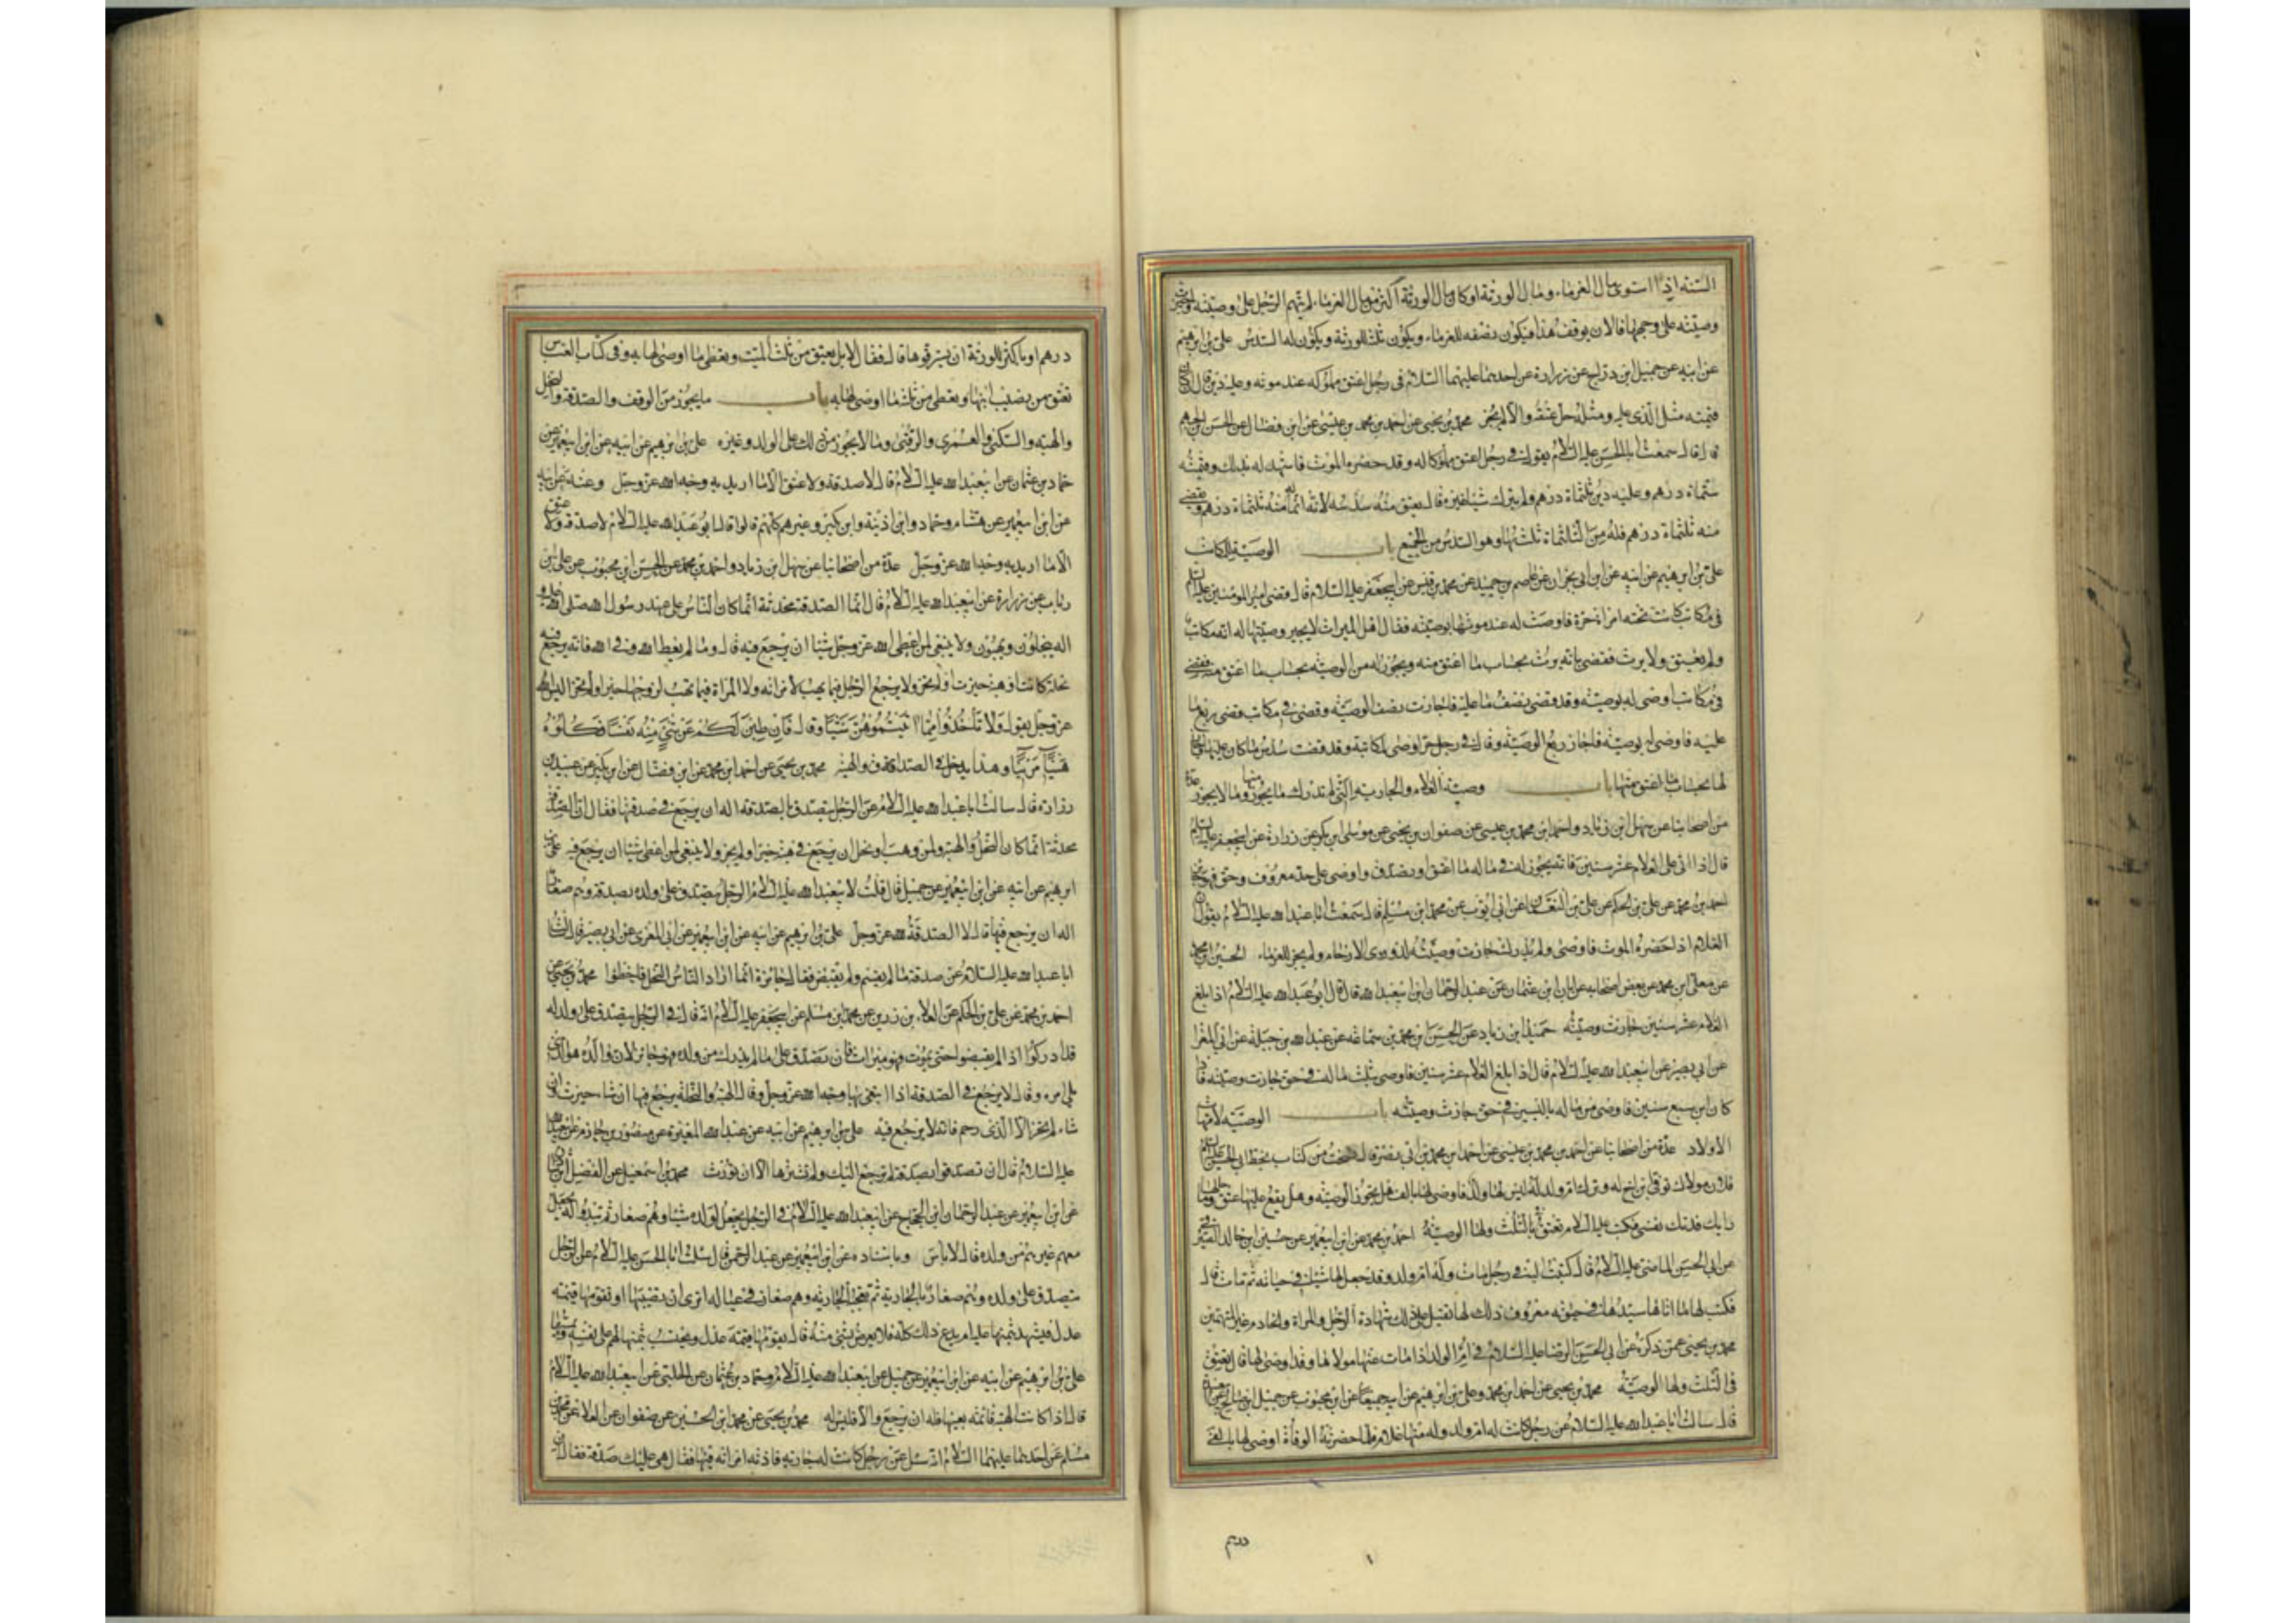 السنة اذا استوى مال الغرماء ومال الورثة او كان مال الورثة اكثر من مال الغرماء لم يتهم الرجل على وصيته واجيزت
وصيته على وجهها فالان يوقف هذا فيكون نصفه للغرماء ويكون ثلثه للورثة ويكون له السدس على بن ابرهيم
عن ابيه عن جميل ابن دراج عن زرارة عن احدهما عليهما السلام فى رجل اعتق مملوكه عند موته وعليه دين قال ان كان
قيمته مثل الذى عليه ومثله جاز عتقه والا لم يجز محمد بن يحيى عن احمد بن محمد بن عيسى عن ابن فضال عن الحسن بن الجهم
قال سمعت ابا الحسن عليه السلام يقول فى رجل اعتق مملوكا له وقد حضره الموت فاشهد له بذلك وقيمته
ستماة درهم وعليه دين ثلثماة درهم ولم يترك شيئا غيره قال يعتق منه سدسه لانه انما له منه ثلثماة درهم ويقضى
منه ثلثماة درهم فله من الثلثماة ثلثها وهو السدس من الجميع باب الوصية للمكاتب
على بن ابرهيم عن ابيه عن ابن ابى نجران عن عاصم بن حميد عن محمد بن قيس عن ابيجعفر عليه السلام قال قضى امير المؤمنين عليه السلام
فى مكاتب كانت تحته امراة حرة فاوصت له عند موتها بوصيته فقال اهل الميراث لا يجيز وصيتها له انه مكاتب
ولم يعتق ولا يرث فقضى بانه يرث بحساب ما اعتق منه ويجوز له من الوصية بحساب ما اعتق منه وقضى
فى مكاتب اوصى له بوصيته وقد قضى نصف ما عليه فاجازت نصف الوصية وقضى فى مكاتب قضى ربع ما
عليه فاوصى له بوصيته فاجاز ربع الوصية وقال فى رجل حر اوصى لمكاتبة وقد قضت سدس ما كان عليها فاجاز
لها بحساب ما اعتق منها باب وصية الغلام والجارية التى لم تدرك ما يجوز منها وما لا يجوز عدة
من اصحابنا عن سهل ابن زياد واحمد ابن محمد بن عيسى عن صفوان بن يحيى عن موسى ابن بكر عن زرارة عن ابيجعفر عليه السلام
قال اذا اتى على الغلام عشر سنين فانه يجوز له فى ماله ما اعتق او تصدق واوصى على حد معروف وحق فهو جائز
احمد بن محمد عن على بن الحكم عن على بن النعمان عن ابى ايوب عن محمد ابن مسلم قال سمعت ابا عبد الله عليه السلام يقول ان
الغلام اذا حضره الموت فاوصى ولم يدرك جازت وصيته لذوى الارحام ولم يجز للغرباء الحسين ابن محمد
عن معلى ابن محمد عن بعض اصحابه عن ابان ابن عثمان عن عبد الرحمان ابن ابيعبد الله قال قال ابو عبد الله عليه السلام اذا بلغ
الغلام عشر سنين جازت وصيته حميد ابن زياد عن الحسن ابن محمد بن سماعة عن عبد الله بن جبلة عن ابى المغرا
عن ابى بصير عن ابيعبد الله عليه السلام قال اذا بلغ الغلام عشر سنين فاوصى بثلث ماله فى حق جازت وصيته فاذا
كان ابن سبع سنين فاوصى من ماله باليسير فى حق جازت وصيته باب الوصية لامهات
الاولاد عدة من اصحابنا عن احمد بن محمد بن عيسى عن احمد ابن محمد بن ابى نصر قال نسخت من كتاب بخط ابى الحسن عليه السلام
فلان مولاك توفى ابن اخ له وترك ام ولد له ليس لها ولد فاوصى لها بالف هل يجوز الوصية وهل يقع عليها عتق وما حالها
رايك فدتك نفسى فكتب عليه السلام تعتق بالثلث ولها الوصية احمد بن محمد عن ابن ابيعمير عن حسين ابن خالد الصيرفى
عن ابى الحسن الماضى عليه السلام قال كتبت اليه فى رجل مات وله ام ولد وقد جعل لها شيئا فى حياته ثم مات قال
فكتب لها ما اثابها سيدها فى حيوته معروف ذلك لها تقبل على ذلك شهادة الرجل والمراة والخادم غير المتهمين
محمد بن يحيى عمن ذكره عن ابى الحسن الرضا عليه السلام فى ام الولد اذا مات عنها مولاها وقد اوصى لها قال تعتق
فى الثلث ولها الوصية محمد بن يحيى عن احمد ابن محمد وعلى بن ابرهيم عن ابيه جميعا عن ابن محبوب عن جميل ابن صالح عن ابيعبيدة
قال سالت ابا عبد الله عليه السلام عن رجل كانت له ام ولد وله منها غلام فلما حضرته الوفاة اوصى لها بالفى
درهم
درهم او باكثر للورثة ان يسترقوها قال فقال لا بل يعتق من ثلث الميت ويعطى ما اوصى لها به وفى كتاب العباس
تعتق من نصيب ابنها ويعطى من ثلثه ما اوصى لها به باب ما يجوز من الوقف والصدقة والنحل
والهبة والسكنى والعمرى والرقبى وما لا يجوز من ذلك على الولد وغيره على بن ابرهيم عن ابيه عن ابن ابيعمير عن
حماد بن عثمان عن ابيعبد الله عليه السلام قال لا صدقة ولا عتق الا ما اريد به وجه الله عز وجل وعنه عن ابيه
عن ابن ابيعمير عن هشام وحماد وابن اذينة وابن بكير وغيرهم كلهم قالوا قال ابو عبد الله عليه السلام لا صدقة ولا عتق
الا ما اريد به وجه الله عز وجل عدة من اصحابنا عن سهل ابن زياد واحمد بن محمد عن الحسن ابن محبوب عن على بن
رياب عن زرارة عن ابيعبد الله عليه السلام قال انما الصدقة محدثة انما كان الناس على عهد رسول الله صلى الله عليه و
اله ينحلون ويهبون ولا ينبغى لمن اعطى الله عز وجل شيئا ان يرجع فيه قال وما لم يعط لله وفى الله فانه يرجع فيه
نحلة كانت او هبة حيزت او لم تحز ولا يرجع الرجل فيما يهب لامراته ولا المراة فيما تهب لزوجها حيز او لم يحز اليس الله
عز وجل يقول ولا تاخذوا مما اتيتموهن شيئا وقال فان طبن لكم عن شىء منه نفسا فكلوه
هنيئا مريئا وهذا يدخل فى الصداق والهبة محمد بن يحيى عن احمد ابن محمد عن ابن فضال عن ابن بكير عن عبيد بن
زرارة قال سالت ابا عبد الله عليه السلام عن الرجل يتصدق بالصدقة اله ان يرجع فى صدقته فقال ان الصدقة
محدثة انما كان النحل والهبة ولمن وهب او نحل ان يرجع فى هبته حيز او لم يحز ولا ينبغى لمن اعطى شيئا ان يرجع فيه على بن
ابرهيم عن ابيه عن ابن ابيعمير عن جميل قال قلت لابيعبد الله عليه السلام الرجل يتصدق على ولده بصدقة وهم صغار
اله ان يرجع فيها قال لا الصدقة لله عز وجل على بن ابرهيم عن ابيه عن ابن ابيعمير عن ابى المغرى عن ابى بصير قال سالت
ابا عبد الله عليه السلام عن صدقة ما لم يقسم ولم يقبض فقال جائزة انما اراد الناس النحل فاخطاوا محمد بن يحيى عن
احمد بن محمد عن على بن الحكم عن العلاء بن رزين عن محمد ابن مسلم عن ابيجعفر عليه السلام انه قال فى الرجل يتصدق على ولد له
قد ادركوا اذا لم يقبضوا حتى يموت وهو ميراث فان تصدق على ما لم يدرك من ولده فهو جائز لان والده هو الذى
يلى امره وقال لا يرجع فى الصدقة اذا ابتغى بها وجه الله عز وجل وقال الهبة والنحلة يرجع فيها ان شاء حيزت او لم
شاء لم تحز الا لذى رحم فانه لا يرجع فيه على بن ابرهيم عن ابيه عن عبد الله المغيرة عن منصور بن حازم عن ابيعبد الله
عليه السلام قال ان تصدقت بصدقة لم ترجع اليك ولم تشترها الا ان تورث محمد بن اسمعيل عن الفضل ابن شاذان
عن ابن ابيعمير عن عبد الرحمان ابن الحجاج عن ابيعبد الله عليه السلام فى الرجل يجعل لولده شيئا وهم صغار ثم يبدو له يجعل
معهم غيرهم من ولده قال لا باس وباسناده عن ابن ابيعمير عن عبد الرحمن قال سئلت ابا الحسن عليه السلام عن الرجل
يتصدق على ولده وهم صغار بالجارية ثم تعجبه الجارية وهم صغار فى عياله اترى ان يصيبها او يقومها قيمة
عدل فيشهد بثمنها عليه ام يدع ذلك كله فلا يعرض لشىء منه قال يقومها قيمة عدل ويحتسب بثمنها لهم على نفسه ويمسها
على بن ابرهيم عن ابيه عن ابن ابيعمير عن جميل عن ابيعبد الله عليه السلام وحماد بن عثمان عن الحلبى عن ابيعبد الله عليه السلام
قال اذا كانت الهبة قائمة بعينها فله ان يرجع والا فليس له محمد بن يحيى عن محمد ابن الحسين عن صفوان عن العلاء عن محمد بن
مسلم عن احدهما عليهما السلام انه سئل عن رجل كانت له جارية فاذته امراته فيها فقال هى عليك صدقة فقال ان